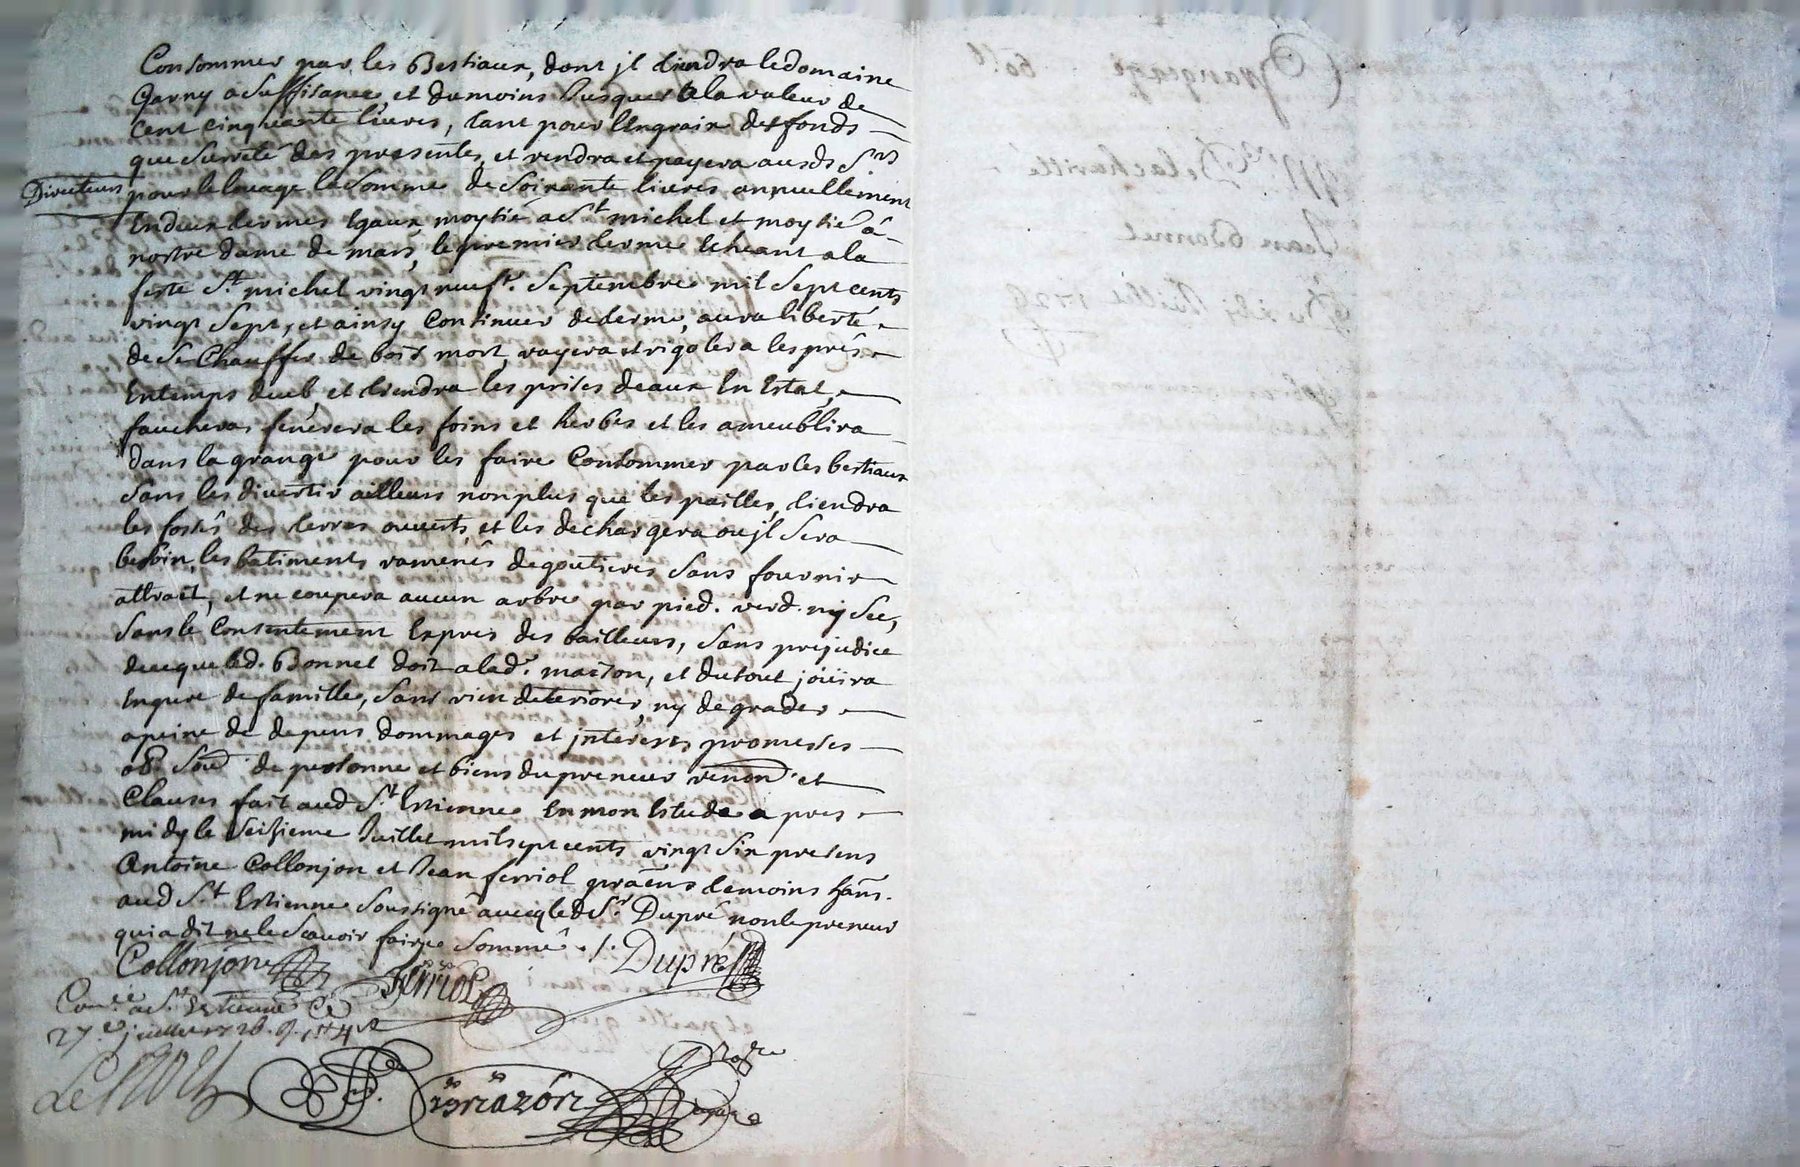 Consommer par les Bestiaux, dont jl tiendra le domaine
Garny a Suffisance, et du moins Jusques a la valeur de
cent cinquante livres, tant pour l'Engrais des fonds
que Sureté des presentes, et rendra et payera ausds Srs
Directeurs pour le louage la Somme de Soixante livres annuellement
En deux termes Egaux, moytié a St michel et moytié â
nostre dame de mars, le premier terme Echeant a la
feste St michel vingt neufe. Septembre mil Sept cents
vingt Sept, et ainsy Continuer de terme, aura liberté
de Se Chauffer de bois mort, rayera et rigolera les prés
En temps deub, et tiendra les prises deaux En Estat,
fauchera, fenerera les foins et herbes et les ameublira
dans la grange pour les faire Consommer par les bestiaux
Sans les divertir ailleurs non plus que les pailles, tiendra
les fossés des terres ouverts, et les dechargera ou jl Sera
besoin, les batiments ramenés de goutieres Sans fournir
attrait, et ne coupera aucun arbre par pied. verd. ny Sec,
Sans le Consentement Expres des bailleurs, Sans prejudice
de ce que led. Bonnet doit a lade. maison, et du tout joüira
En pere de famille, Sans rien deteriorer, ny degrader
a peine de depens dommages et jnterests promesses
ob. Soud. de personne et biens du preneur renon. et
Clauses fait aud St Estienne En mon Etude a pres
midy le Seizieme Juillet mil sept cents vingt Six presens
Antoine Collonjon et Jean ferriol praëns temoins hans.
aud St Estienne Soussigné avecq led Sr. Dupré, non le preneur
qui a dit ne le Scavoir faire Sommé ./.
Collonjon ferriol Dupré
Con.lé a St Estienne Ce
27e juillet 1726.